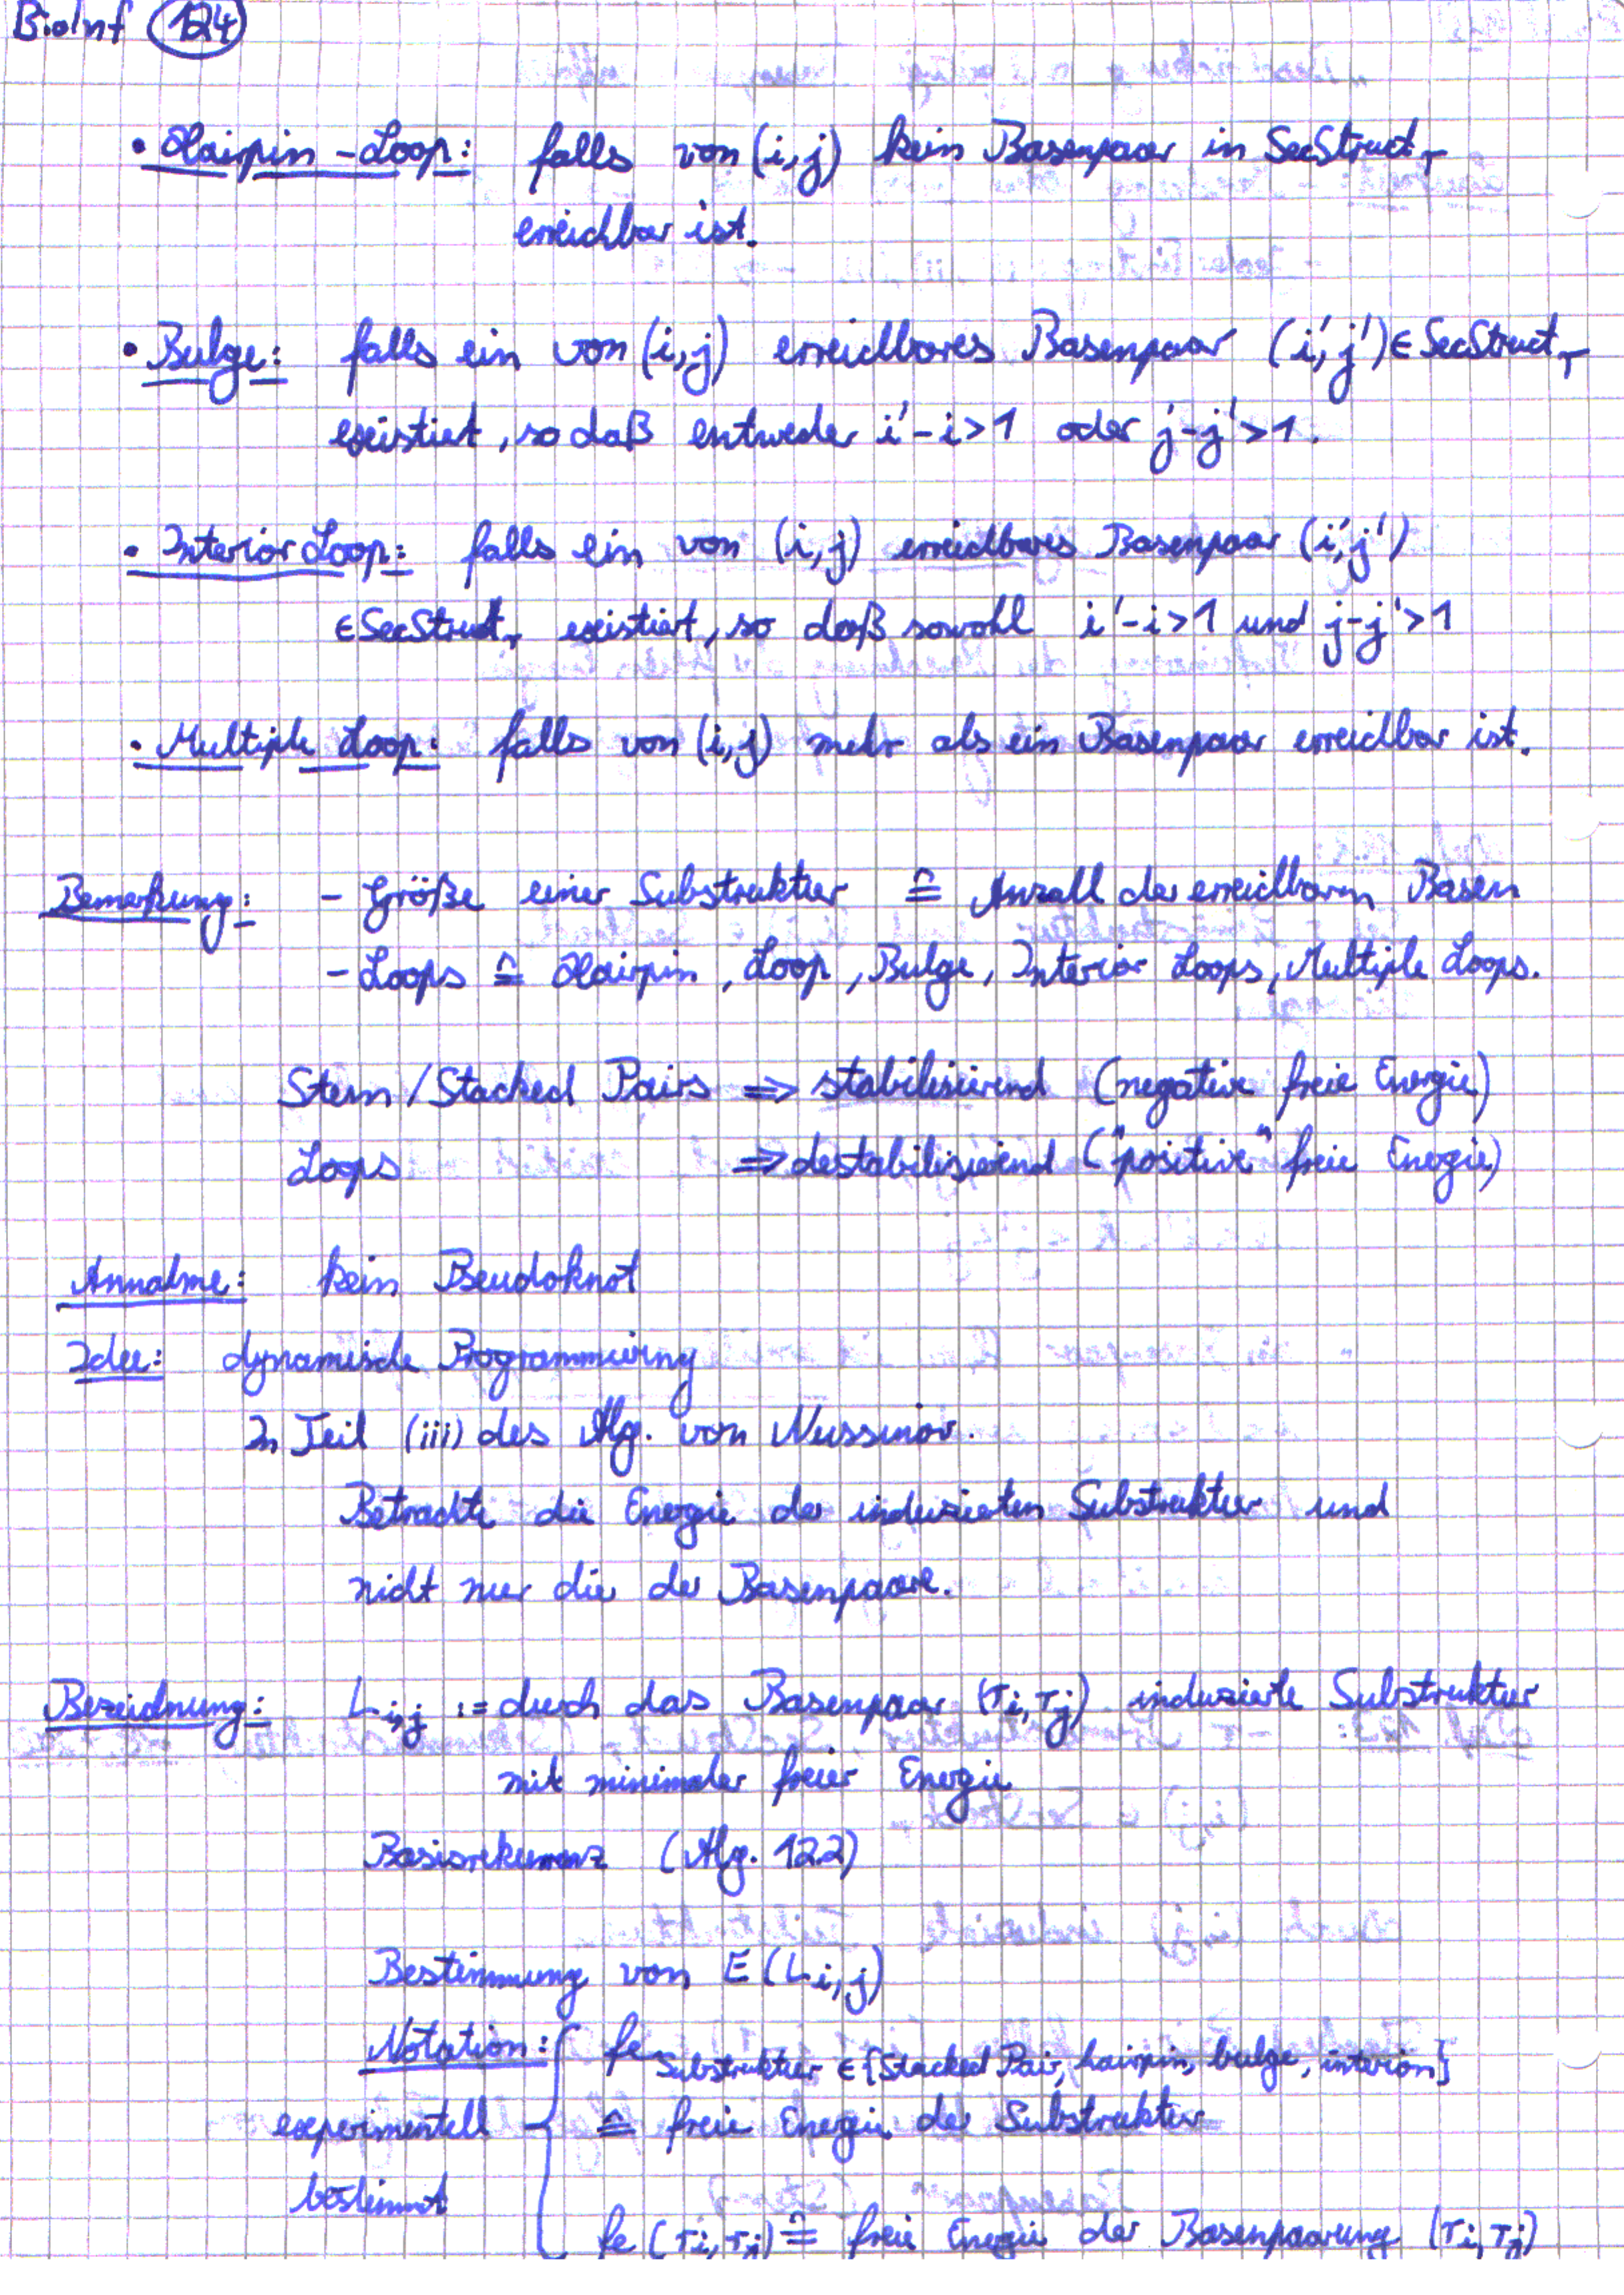 BioInf 124
• Hairpin-Loop: falls von (i,j) kein Basenpaar in SecStruct_r
erreichbar ist.
• Bulge: falls ein von (i,j) erreichbares Basenpaar (i',j') ∈ SecStruct_r
existiert, so daß entweder i'-i>1 oder j-j'>1.
• Interior Loop: falls ein von (i,j) erreichbares Basenpaar (i',j')
∈ SecStruct_r existiert, so daß sowohl i'-i>1 und j-j'>1
• Multiple Loop: falls von (i,j) mehr als ein Basenpaar erreichbar ist.
Bemerkung: - Größe einer Substruktur ≙ Anzahl der erreichbaren Basen
- Loops ≙ Hairpin, Loop, Bulge, Interior Loops, Multiple Loops.
Stem/Stacked Pairs ⇒ stabilisierend (negative freie Energie)
Loops ⇒ destabilisierend ("positive" freie Energie)
Annahme: kein Pseudoknot
Idee: dynamische Programmierung
In Teil (iii) des Alg. von Nussinov.
Betrachte die Energie der induzierten Substruktur und
nicht nur die der Basenpaare.
Bezeichnung: L_i,j := durch das Basenpaar (r_i, r_j) induzierte Substruktur
mit minimaler freier Energie
Basisrekurrenz (Alg. 12.2)
Bestimmung von E(L_i,j)
Notation: fe_Substruktur ∈ {Stacked Pair, hairpin, bulge, interior}
experimentell ≙ freie Energie der Substruktur
bestimmt
fe(r_i, r_j) ≙ freie Energie der Basenpaarung (r_i, r_j)